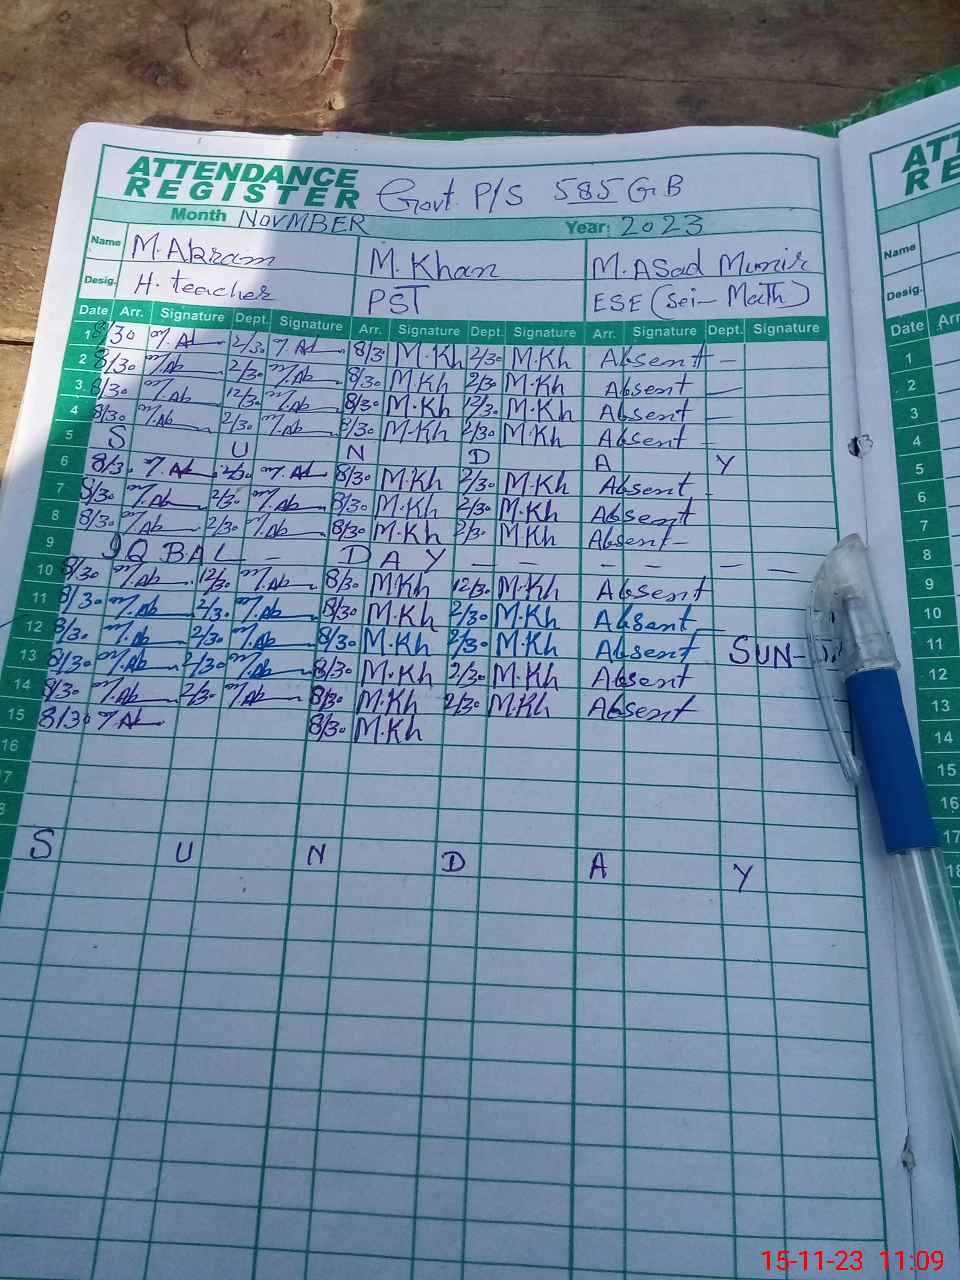 ATTENDANCE REGISTER Govt. P/S 585 GB
Month NOVMBER Year: 2023
Name M. Akram M. Khan M. ASad Munir
Desig. H. teacher PST ESE (Sci- Math)
Date Arr. Signature Dept. Signature Arr. Signature Dept. Signature Arr. Signature Dept. Signature
1 8/30 M. Ak 2/30 M. Ak 8/3 M.Kh 2/30 M.Kh Absent -
2 8/30 M. Ak 2/30 M. Ak 8/30 M.Kh 2/30 M.Kh Absent -
3 8/30 M. Ak 12/30 M. Ak 8/30 M.Kh 12/30 M.Kh Absent -
4 8/30 M. Ak 2/30 M. Ak 8/30 M.Kh 2/30 M.Kh Absent -
5 S U N D A Y
6 8/3 M. Ak M. Ak 8/30 M.Kh 2/30 M.Kh Absent -
7 8/30 M. Ak 2/30 M. Ak 8/30 M.Kh 2/30 M.Kh Absent
8 8/30 M. Ak 2/30 M. Ak 8/30 M.Kh 2/30 M.Kh Absent -
9 IQBAL - DAY - - - - -
10 8/30 M. Ak 12/30 M. Ak 8/30 M.Kh 12/30 M.Kh Absent
11 8/30 M. Ak 2/30 M. Ak 8/30 M.Kh 2/30 M.Kh Absent -
12 8/30 M. Ak 2/30 M. Ak 8/30 M.Kh 2/30 M.Kh Absent SUN-
13 8/30 M. Ak 2/30 M. Ak 8/30 M.Kh 2/30 M.Kh Absent
14 8/30 M. Ak 2/30 M. Ak 8/30 M.Kh 2/30 M.Kh Absent
15 8/30 M. Ak 8/30 M.Kh
16
7
8
S U N D A Y
ATT
RE
Name
Desig.
Date Arr
1
2
3
4
5
6
7
8
9
10
11
12
13
14
15
16
17
18
15-11-23 11:09